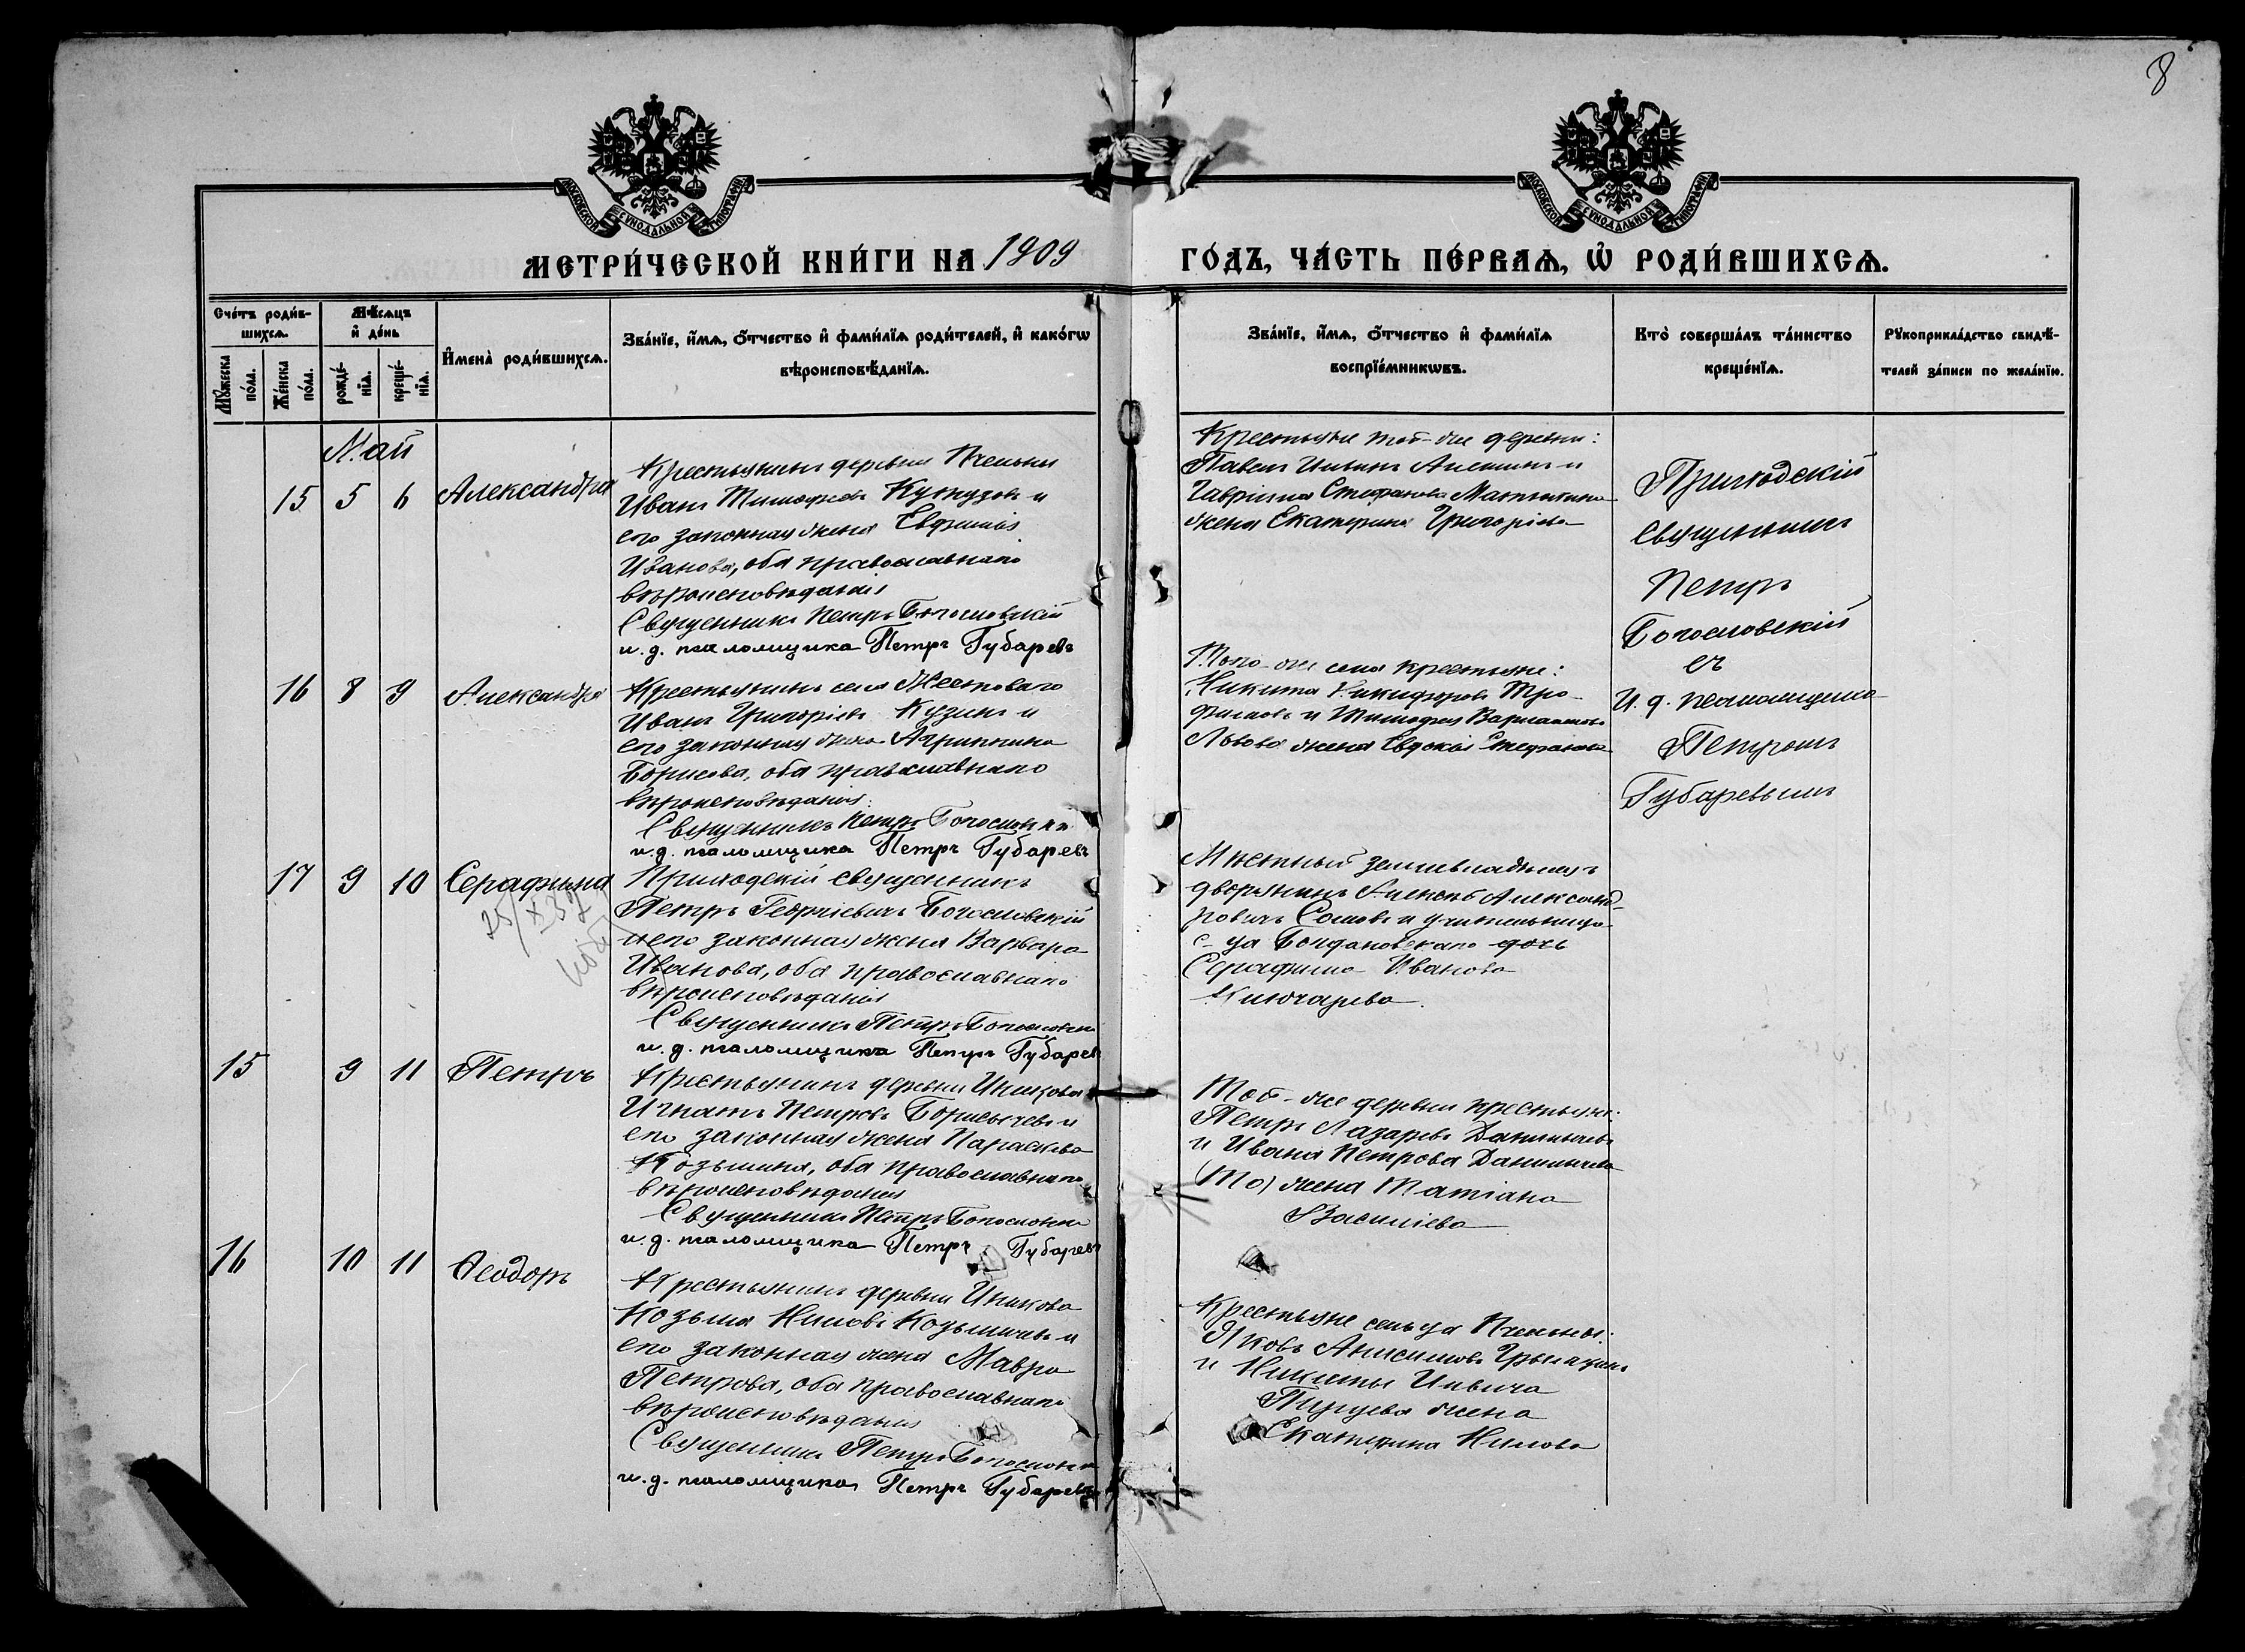 8
МОСКОВСКОЙ СУНОДАЛЬНОЙ ТИПОГРАФІИ
МОСКОВСКОЙ СУНОДАЛЬНОЙ ТИПОГРАФІИ
МЕТРИ́ЧЕСКОЙ КНИ́ГИ НА 1909
ГО́ДЪ, ЧА́СТЬ ПЕ́РВАѦ, Ѡ҆ РОДИ́ВШИХСѦ.
Сче́тъ роди́в-
шихсѧ.
Мꙋ́жеска
по́ла.
Же́нска
по́ла.
Мѣ́сѧцъ
и҆ де́нь
рожде́-
нїѧ.
креще́-
нїѧ.
И҆мена̀ роди́вшихсѧ.
Зва́нїе, и҆́мѧ, ѻ҆́тчество и҆ фами́лїѧ роди́телей, и҆ како́гѡ
вѣроисповѣ́данїѧ.
Зва́нїе, и҆́мѧ, ѻ҆́тчество и҆ фами́лїѧ
воспрїе́мникѡвъ.
Кто̀ соверша́лъ та́инство
креще́нїѧ.
Рꙋкоприкла́дство свидѣ́-
телей за́писи по жела́нїю.
Май
15 5 6 Александра
Крестьянинъ деревни Пчельны
Иванъ Тимофеевъ и
его законная жена Евфимія
Иванова, оба православнаго
вѣроисповѣданія
Священникъ Петръ Богословскій
и. д. псаломщика Петръ Губаревъ
Крестьяне той-же деревни:
Павелъ Ильинъ Алешинъ и
Гавріила Стефанова
жена Екатерина Григоріева
Приходскій
священникъ
Петръ
Богословскій
съ
И. д. псаломщика
Петромъ
Губаревымъ
16 8 9 Александра
Крестьянинъ села Жестоваго
Иванъ Григоріевъ Кузинъ и
его законная жена Агриппина
Борисова, оба православнаго
вѣроисповѣданія:
Священникъ Петръ Богословскій
и. д. псаломщика Петръ Губаревъ
Того-же села крестьяне:
Никита Никифоровъ Тро-
фимовъ и Тимофея
Львова жена Евдокія Стефанова
17 9 10 Серафима
25/X 39
Приходскій священникъ
Петръ Георгіевичъ Богословскій
и его законная жена Варвара
Иванова, оба православнаго
вѣроисповѣданія
Священникъ Петръ Богословскій
и. д. псаломщика Петръ Губаревъ
Мѣстный землевладѣлецъ
дворянинъ Алексѣй Александ-
ровичъ Сомовъ и учительница
с-ца дочь
Серафима Иванова
Ключарева.
15 9 11 Петръ
Крестьянинъ деревни Иншкова
Игнатъ Петровъ Борисычевъ и
его законная жена Параскева
Козьмина, оба православнаго
вѣроисповѣданія
Священникъ Петръ Богословскій
и. д. псаломщика Петръ Губаревъ
Той-же деревни крестьяне:
Петръ Лазаревъ Данилычевъ
и Ивана Петрова Данилычева
жена Татіана
Василіева
16 10 11 Ѳеодоръ
Крестьянинъ деревни Иншкова
Козьма Ниловъ Козьмичевъ и
его законная жена Мавра
Петрова, оба православнаго
вѣроисповѣданія
Священникъ Петръ Богословскій
и. д. псаломщика Петръ Губаревъ
Крестьяне сельца Пчельны:
Яковъ Анисимовъ
и Никиты Ильича
жена
Екатерина Нилова